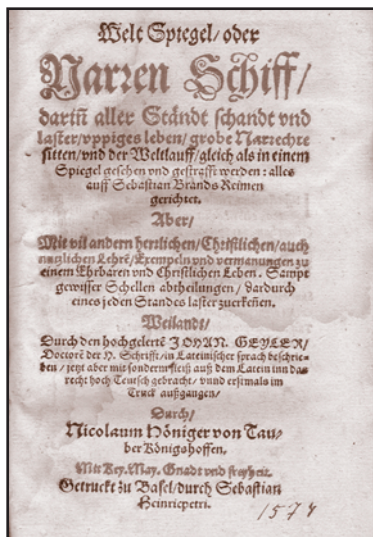 Welt Spiegel/ oder
Narren Schiff/
dariñ aller Ständt schandt vnd
laster/ vppiges leben/ grobe Narrechte
sitten/ vnd der Weltlauff/ gleich als in einem
Spiegel gesehen vnd gestrafft werden: alles
auff Sebastian Brands Reimen
gerichtet.
Aber/
Mit vil andern herrlichen/ Christlichen/ auch
nutzlichen Lehrē/ Exempeln vnd vermanungen zu
einem Ehrbaren vnd Christlichen Leben. Sampt
gewisser Schellen abtheilungen/ dardurch
eines jeden Standes laster zuerkeñen.
Weilandt/
Durch den hochgelertē JOHAN. GEYLER/
Doctorē der H. Schrifft/ in Lateinischer sprach beschrie-
ben/ jetzt aber mit sonderm fleiß auß dem Latein inn das
recht hoch Teutsch gebracht/ vnnd erstmals im
Truck außgangen/
Durch/
Nicolaum Höniger von Tau-
ber Königshoffen.
Mit Key. May. Gnadt vnd freyheit.
Getruckt zu Basel/ durch Sebastian
Heinricpetri.
1574